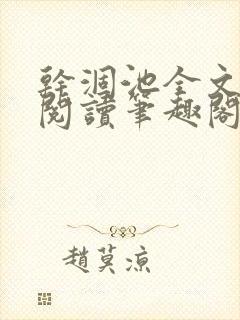 幹涸池全文
閱讀筆趣閣
趙莫涼